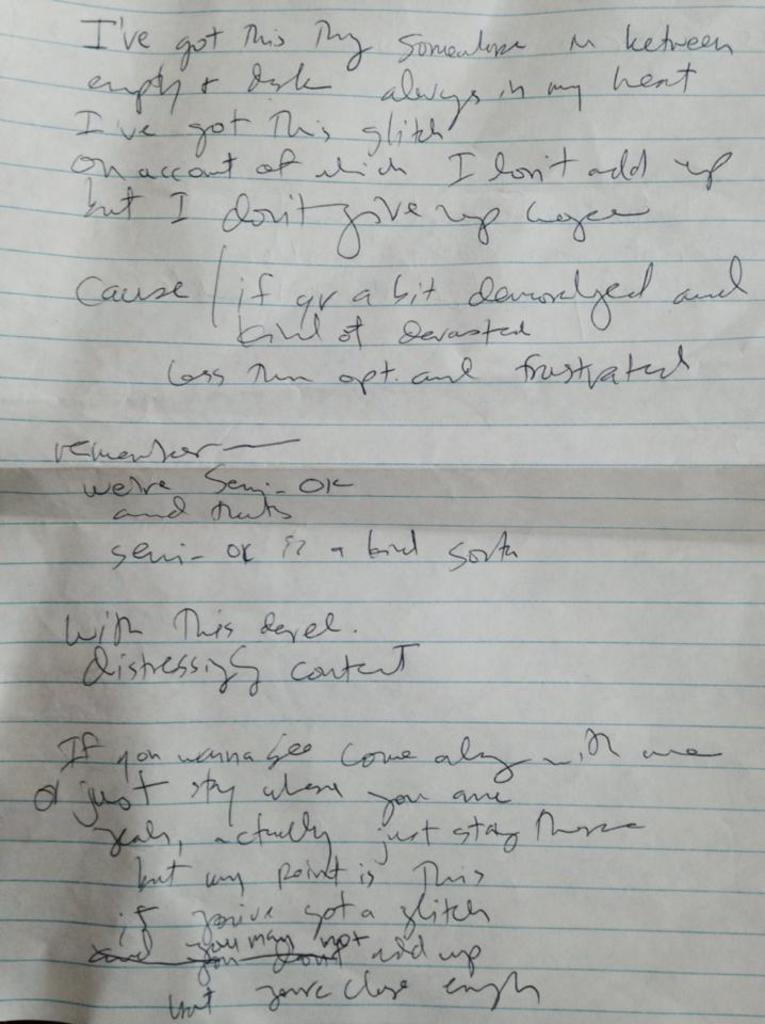 I've got this thing somewhere in between
empty & dark always in my heart
I've got this glitch
On account of which I don't add up
but I don't give up
Cause / if yr a bit demoralized and
kind of devasted
Less than opt. and frustrated
remember —
we're Semi-OK
and that's
semi-ok is a kind sorta
With this devel.
distressing content
If you wanna see come along with me
or just stay where you are
yeah, actually just stay there
but my point is this
if you've got a glitch
you may not add up
but you're close enough